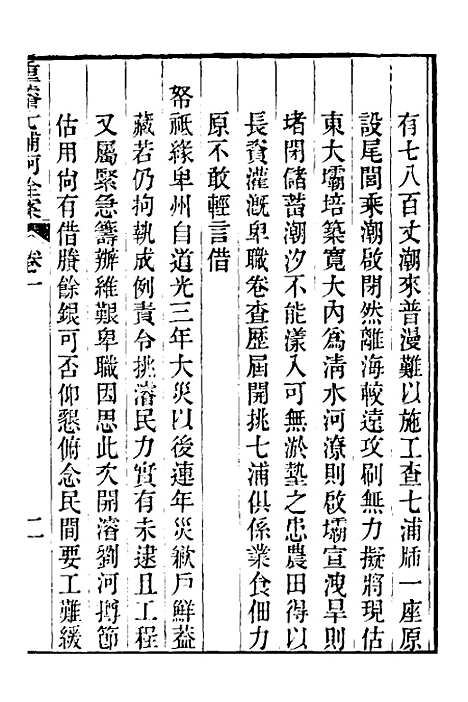 有七八百丈潮來普漫難以施工查七浦牐一座原
設尾閭乘潮啟閉然離海較遠攻刷無力擬將現估
東大壩培築寬大內爲淸水河潦則啟壩宣洩旱則
堵閉儲蓄潮汐不能漾入可無淤墊之患農田得以
長資灌漑卑職卷查歷屆開挑七浦俱係業食佃力
原不敢輕言借
帑祇緣卑州自道光三年大災以後連年災歉戶鮮葢
藏若仍拘執成例責令挑濬民力實有未逮且工程
又屬緊急籌辦維艱卑職因思此次開濬劉河撙節
估用尙有借賸餘銀可否仰懇俯念民間要工難緩
重濬七浦河全案 卷一 二